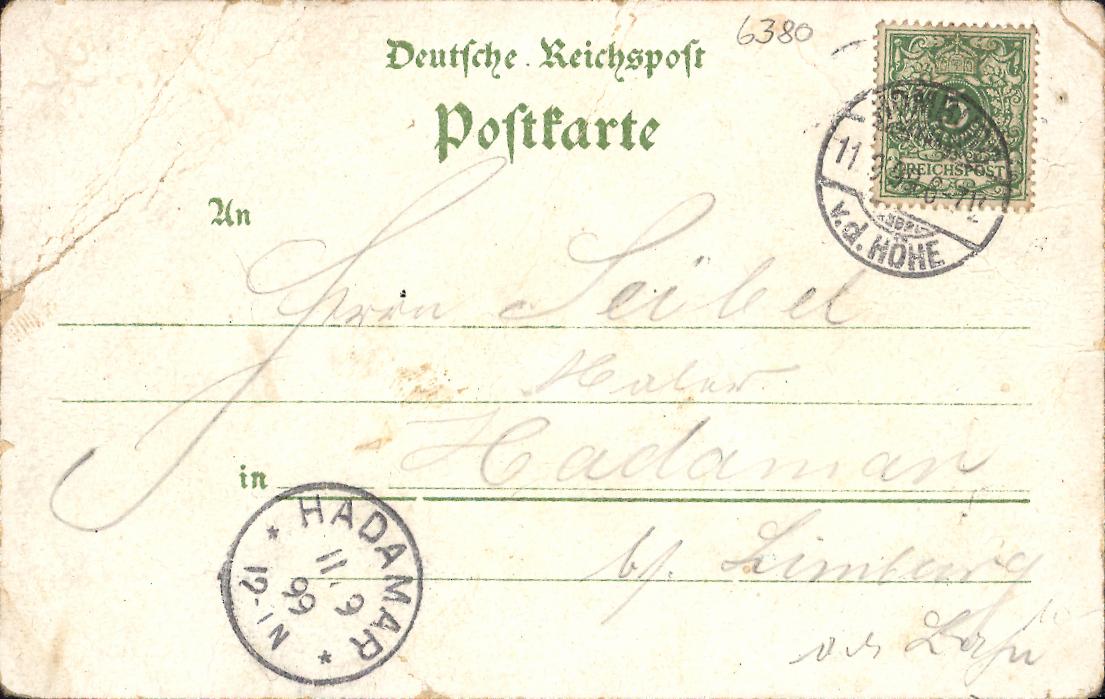 6380
Deutsche Reichspost
Postkarte
5
REICHSPOST
11.9.99
v.d. HÖHE
An
Herrn Seibel
Maler
in Hadamar
b/. Limburg
a/d Lahn
HADAMAR
11.9
99
12-1N